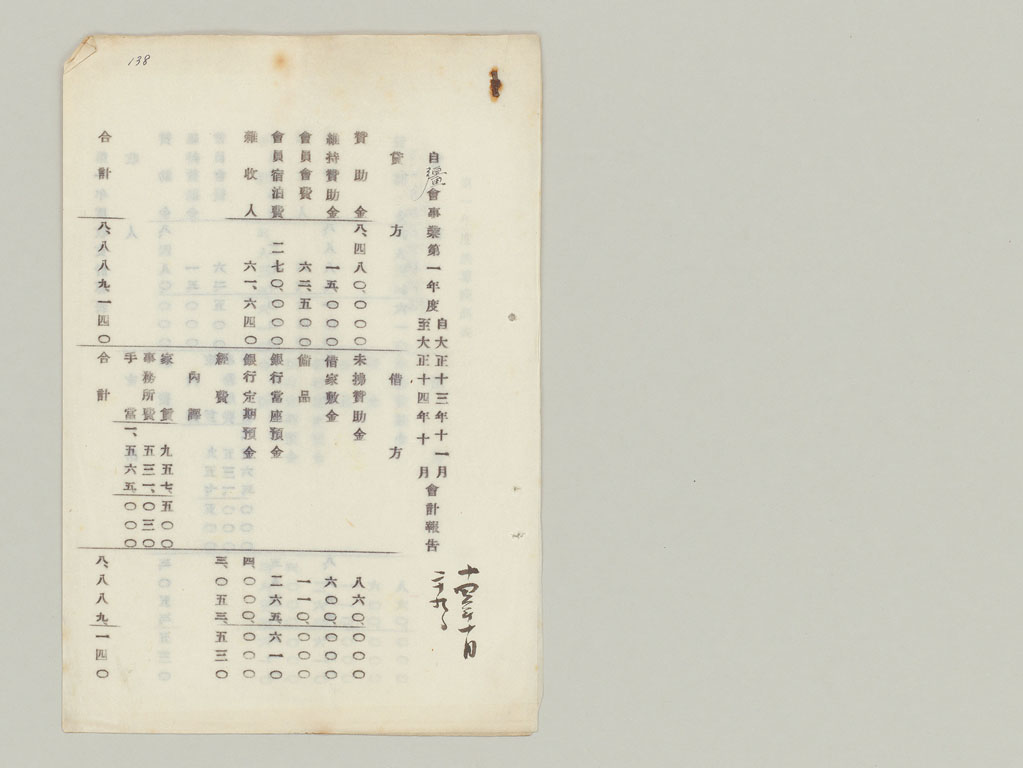 138
自彊會事業第一年度自大正十三年十一月至大正十四年十月會計報告
十四年十月
二十九日
貸方
贊助金 八、四八〇、〇〇〇
維持贊助金 一五、〇〇〇
會員會費 六二、五〇〇
會員宿泊費 二七〇、〇〇〇
雜收入 六一、六四〇
合計 八、八八九、一四〇
借方
未拂贊助金 八六〇、〇〇〇
借家敷金 六〇〇、〇〇〇
備品 一一〇、〇〇〇
銀行當座預金 二六五、六一〇
銀行定期預金 四、〇〇〇、〇〇〇
經費 三、〇五三、五三〇
內譯
家賃 九五七、五〇〇
事務所費 五三一、〇三〇
手當 一、五六五、〇〇〇
合計 八、八八九、一四〇